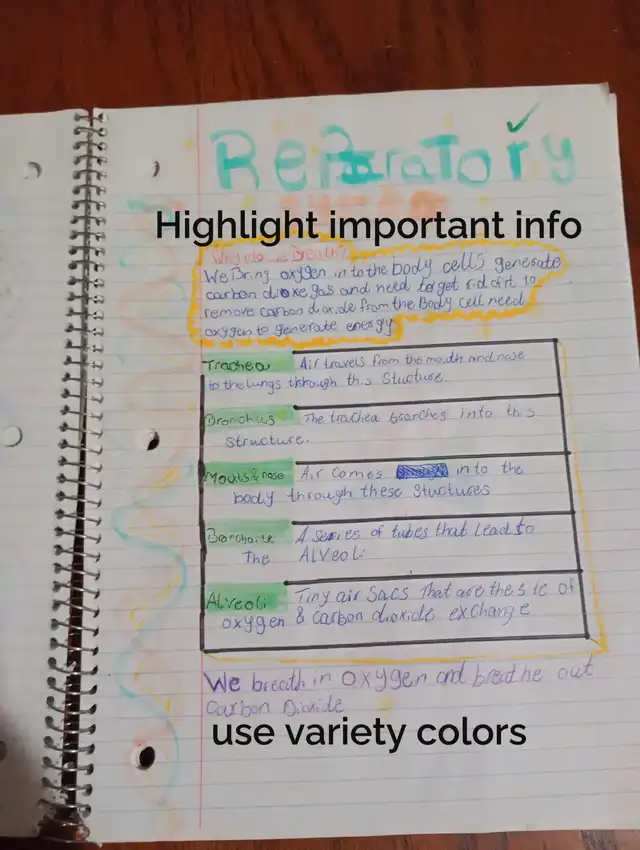 Reparatory
Highlight important info
Why do we Breath?
We Bring oxygen in to the body cells generate
carbon dioxe gas and need to get rid of it to
remove carbon dioxide from the Body cell need
oxygen to generate energy
Trachea Air travels from the mouth and nose
to the lungs thhrough this Stucture.
Bronchus The trachea branches into this
Structure.
Mouth & nose Air Comes into the
body through these Stuctures
A series of tubes that lead to
The ALVEOLi
ALVeoli Tiny air Sacs That are the site of
oxygen & carbon dioxide exchange
We breath in Oxygen and breathe out
Carbon Dioxide
use variety colors